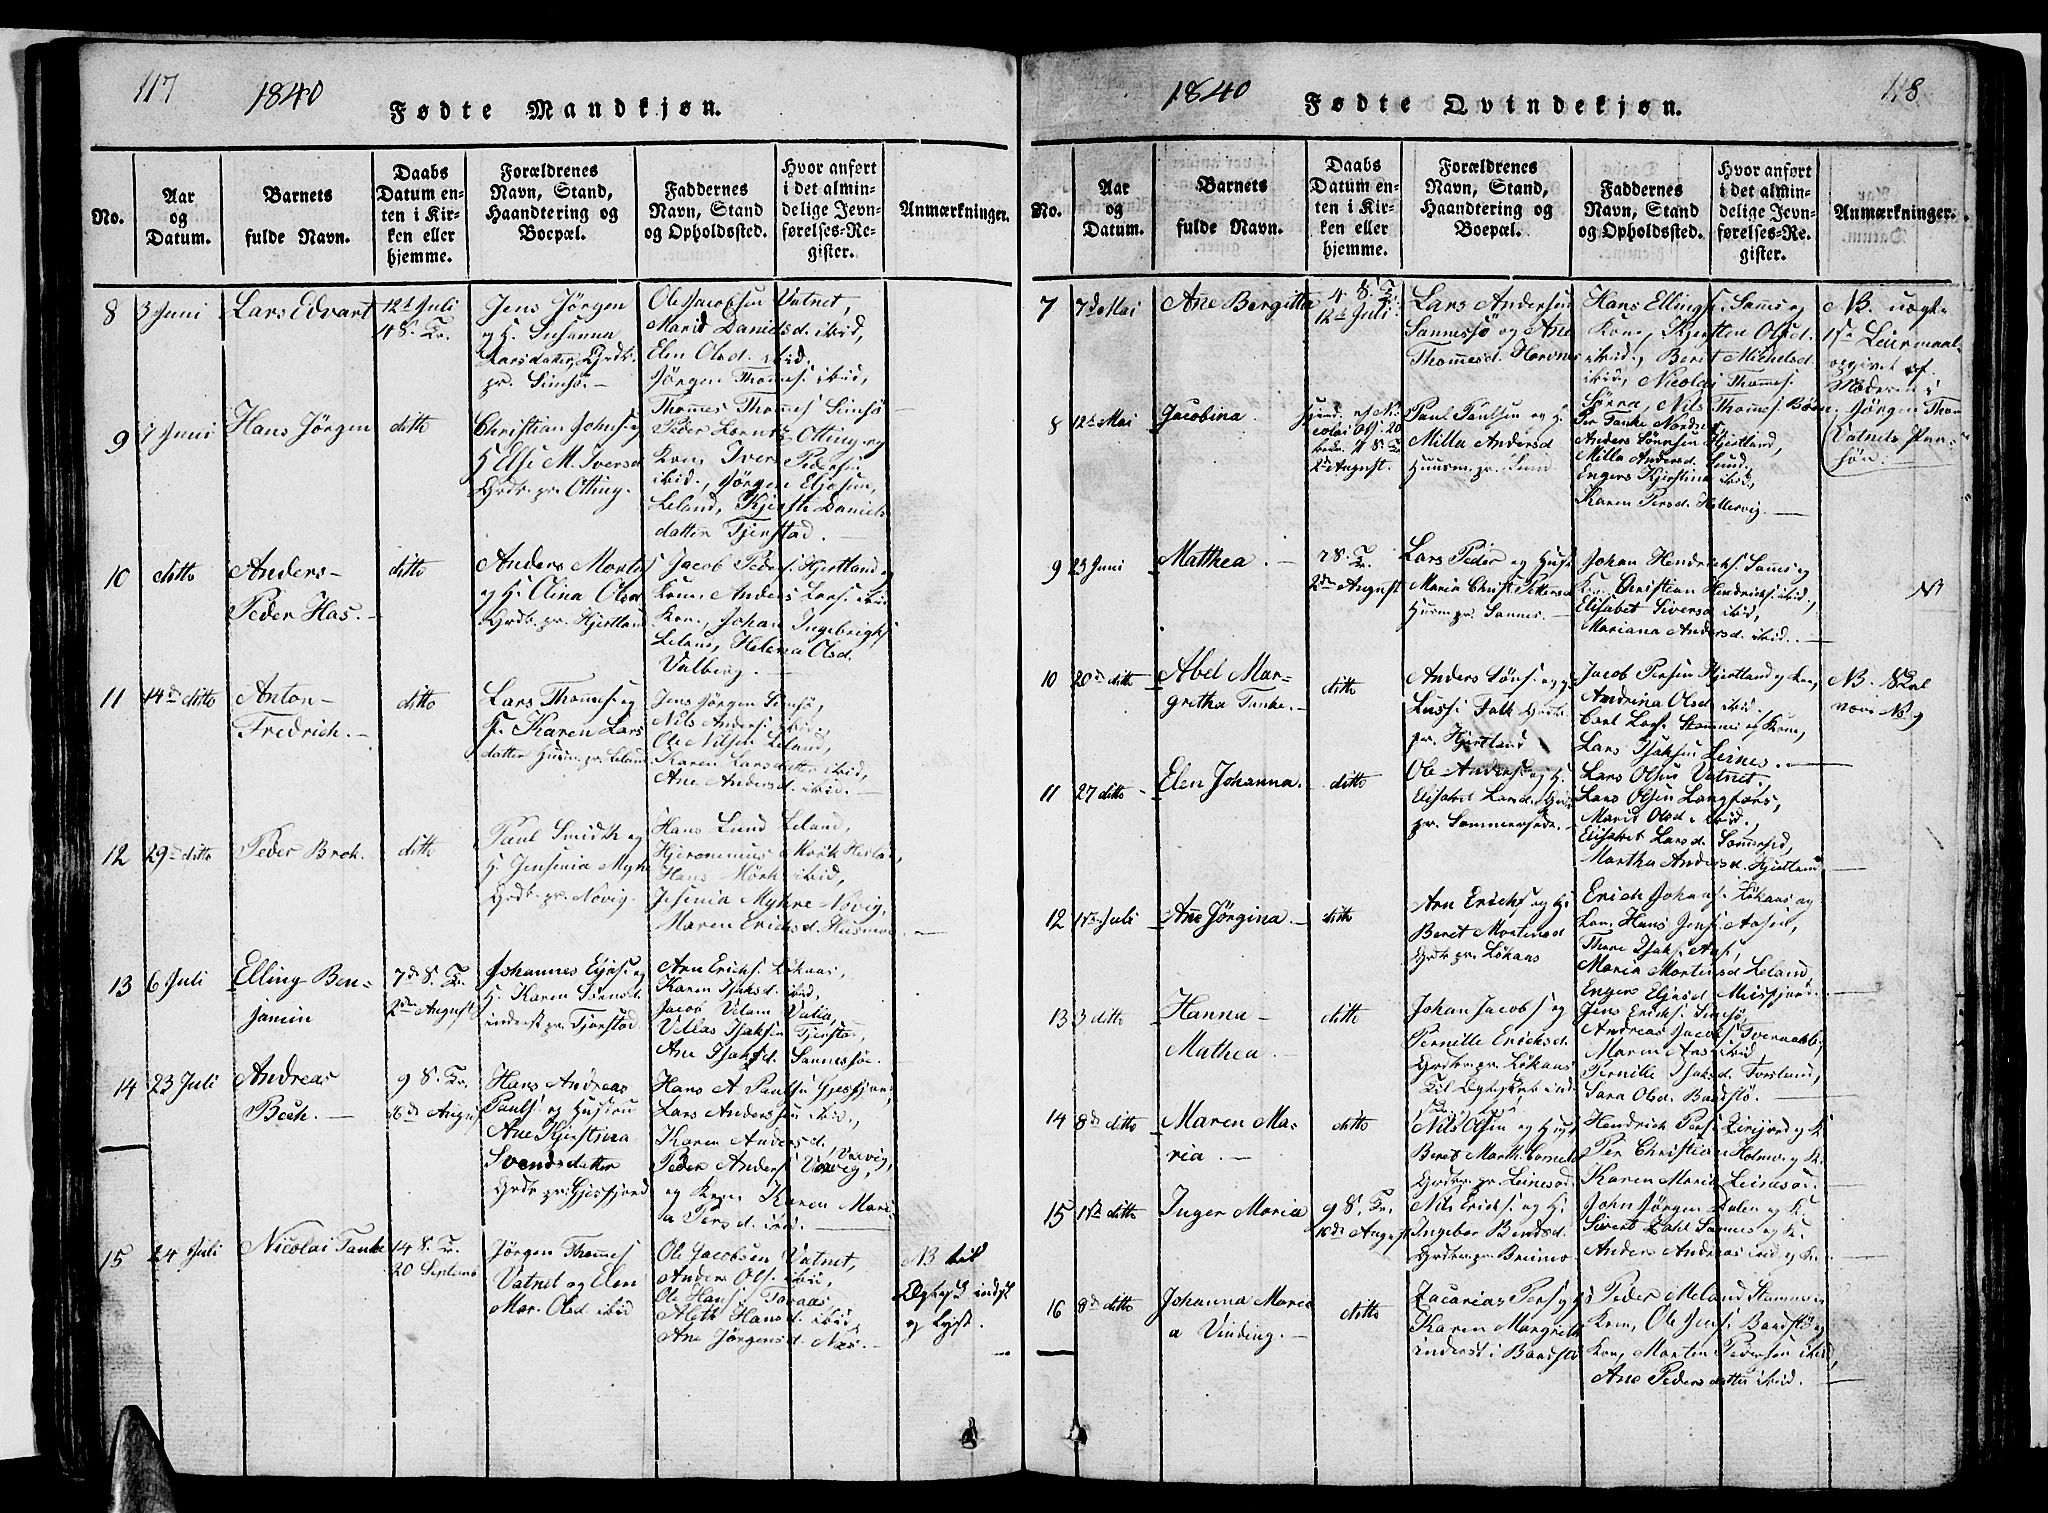 117
1840
Fødte Mandkjøn.
No.
Aar
og
Datum.
Barnets
fulde Navn.
Daabs
Datum en-
ten i Kir-
ken eller
hjemme.
Forældrenes
Navn, Stand,
Haandtering og
Boepæl.
Faddernes
Navn, Stand
og Opholdssted.
Hvor anført
i det almin-
delige Jevn-
førelses-Re-
gister.
Anmærkninger.
8
3 Juni
Lars Edvart
12te Juli
4 S. Tr.
Jens Jörgen
og H. Susanna
Larsdatter, Grdb.
pr. Simsö.
Ole Jacobsen Vatnet,
Marid Danielsd. ibid,
Elen Olsd. ibid.
Jörgen Thomes. ibid,
Thomes Thomes. Simsö
9
7 Juni
Hans Jörgen
ditto
Christian Johns. og
H Else M. Iversd
Grdb. pr. Otting.
Peder Lorntz Otting og
Kone, Iver Pedersen
ibid., Jörgen Eliasen,
Leland, Kjersth Daniels
datter Tjerstad.
10
ditto
Anders
Peder Has.
ditto
Anders Morten
og H. Olina Olsd
Grdb. pr. Hjertland
Jacob Peders. Hjertland og
Kone, Anders Lars. ibid
Kone, Johan Ingebrigts
Leland, Helena Olsd.
Valberg.
11
14de ditto
Anton
Fredrich.
ditto
Lars Thomes. og
F. Karen Lars
datter Husm. pr. Leland
Jens Jörgen Simsö,
Nils Anders. ibid,
Ole Nilsen Leland,
Karen Larsdatter ibid,
Ane Andersd. ibid.
12
29de ditto
Peder Broh.
ditto
Paul Smidth og
H. Jensenia Myhre
Grdb. pr. Novig
Hans Lund Leland,
Hjeronimus Mörk
Hans Mörk ibid,
Jesenia Myhre Novig,
Maren Ericsd.
13
6 Juli
Elling Ben-
jamin
7de S. Tr.
2den August
Johannes og
H. Karen Sörensd.
inderst pr. Tjerstad
Arn Erichs. Lökaas,
Karen Isaksd. ibid,
Jacob Velam Valla,
Vellas Isaksen Tjersta,
Ane Isaksd. Sannessöe.
14
23 Juli
Andreas
Bech.
9 S. Tr.
16de August
Hans Andreas
Pauls. og Hustru
Ane Kjerstina
Svendsdatter
Grdb. pr. Gjesfjord
Hans A Pauls. Gjesfjord
Lars Anderssen ibid,
Karen Andersd. Vorvig,
Peder Anders. Vorvig,
og Kone Karen Mari-
a Persd. ibid.
15
24 Juli
Nicolai Tanke
14 S. Tr.
20 Septemb
Jörgen Thomes
Vatnet og Elen
Mar. Olsd ibid
Ole Jacobsen Vatnet,
Anders Ols. ibid,
Ole Hans. Toraas
Aleth Hansd. ibid,
Ane Jörgensd. Næs.
NB til
Ægtesk. indst
og Lyst.
1840
118
Fødte Qvindekjøn.
No.
Aar
og
Datum.
Barnets
fulde Navn.
Daabs
Datum en-
ten i Kir-
ken eller
hjemme.
Forældrenes
Navn, Stand,
Haandtering og
Boepæl.
Faddernes
Navn, Stand
og Opholdssted.
Hvor anført
i det almin-
delige Jevn-
førelses-Re-
gister.
Anmærkninger.
7
7de Mai
Ane Bergitta
4 S. Tr.
12te Juli
Lars Andersen
Sannessö og Ane
Thomesd. Havnes
Hans Ellings. Sannes og
Kone, Kjersten Olsd.
ibid., Berit Michelsd
ibid, Nicolai Thomes.
Sörra, Nils Thomes. Bön
NB. uægte
1ste Leiermaal
opgivet af
Moderen i
Jörgen Thom
Vatnets Per-
sön.
8
12te Mai
Jacobina
hjemd. af Ni-
colai Ols. 20
bekr. 7 S. Tr
2de August.
Paul Paulsen og H.
Milla Andersd
Huusm. pr. Sund
Per Tanke Nordnes,
Anders Sörensen Hjertland,
Milla Andersd. Sund,
Engers Kjerstina ibid,
Karen Persd. Hellervig.
9
23 Juni
Matthea.
7 S. Tr.
2den August
Lars Peder og Hust
Maria Chrst. Pettersd
Husm. pr. Sannes.
Johan Hendrichs. Sannes og
Kone, Christian Hendrichs. ibid,
Elisabet Siversd ibid,
Mariana Andersd. ibid.
N
10
20de ditto
Abel Mar-
gretha Tanke.
ditto
Anders Sörs. og
Lussi Falk Grdb.
pr. Hjertland
Jacob Persen Hjertland og Kone,
Andrina Olsd ibid.
Carl Lars. Stamnes og Kone,
Lars Isaksen Leines.
NB. Skal
være No 9
11
27 ditto
Elen Johanna.
ditto
Ole Anders. og H.
Elisabet Larsd. Grdb
pr. Sommersede.
Lars Olsen Vatnet,
Lars Olsen Langfors,
Marid Olsd. ibid.,
Elisabet Larsd. Sommersed,
Martha Andersd. Hjertland.
12
1ste Juli
Ane Jörgina.
ditto
Arn Erichs og H.
Beret Mortensd
Grdb. pr. Lökaas
Erich Johans. Lökaas og
Kone, Hans Jens. Aasen,
Thore Isaks. Aas,
Maria Mortensd. Leland,
Engers Eliasd. Meisfjord.
13
3 ditto
Hanna
Mathea.
ditto
Johan Jacobs og
Pernille Erichsd.
Grdbr. pr. Lökaas
Til Ægteskab ind-
Jens Erichs. Simsö,
Andreas Jacobs.
Maren Ars. ibid
Pernille Isaksd. Forsland,
Sara Olsd. Bardstö.
14
8de ditto
Maren Ma-
ria.
ditto
Nils Olsen og Hust
Beret Marth. Corneli
Grdbr. pr. Leinesod
Hendrich Pers. og K
Per Christian Holm og K.
Karen Maria Leinesod.
15
11te ditto
Inger Maria
9 S. Tr.
16de August
Nils Erichs. og H.
Ingebor Bendsd.
Grdbr. pr. Breimo
John Jörgen Dalen og K.
Sivert Dahl Sannes og K.
Anders Andreas ibid og K.
16
8de ditto
Johanna Mari-
a Vinding.
ditto
Zacarias Pers og
Karen Margreth
inderst i Bardstö
Peder Meland Stamnes
Kone, Ole Jens. Bardstö og
Kone, Morten Pedersen ibid,
Ane Pedersdatter ibid.